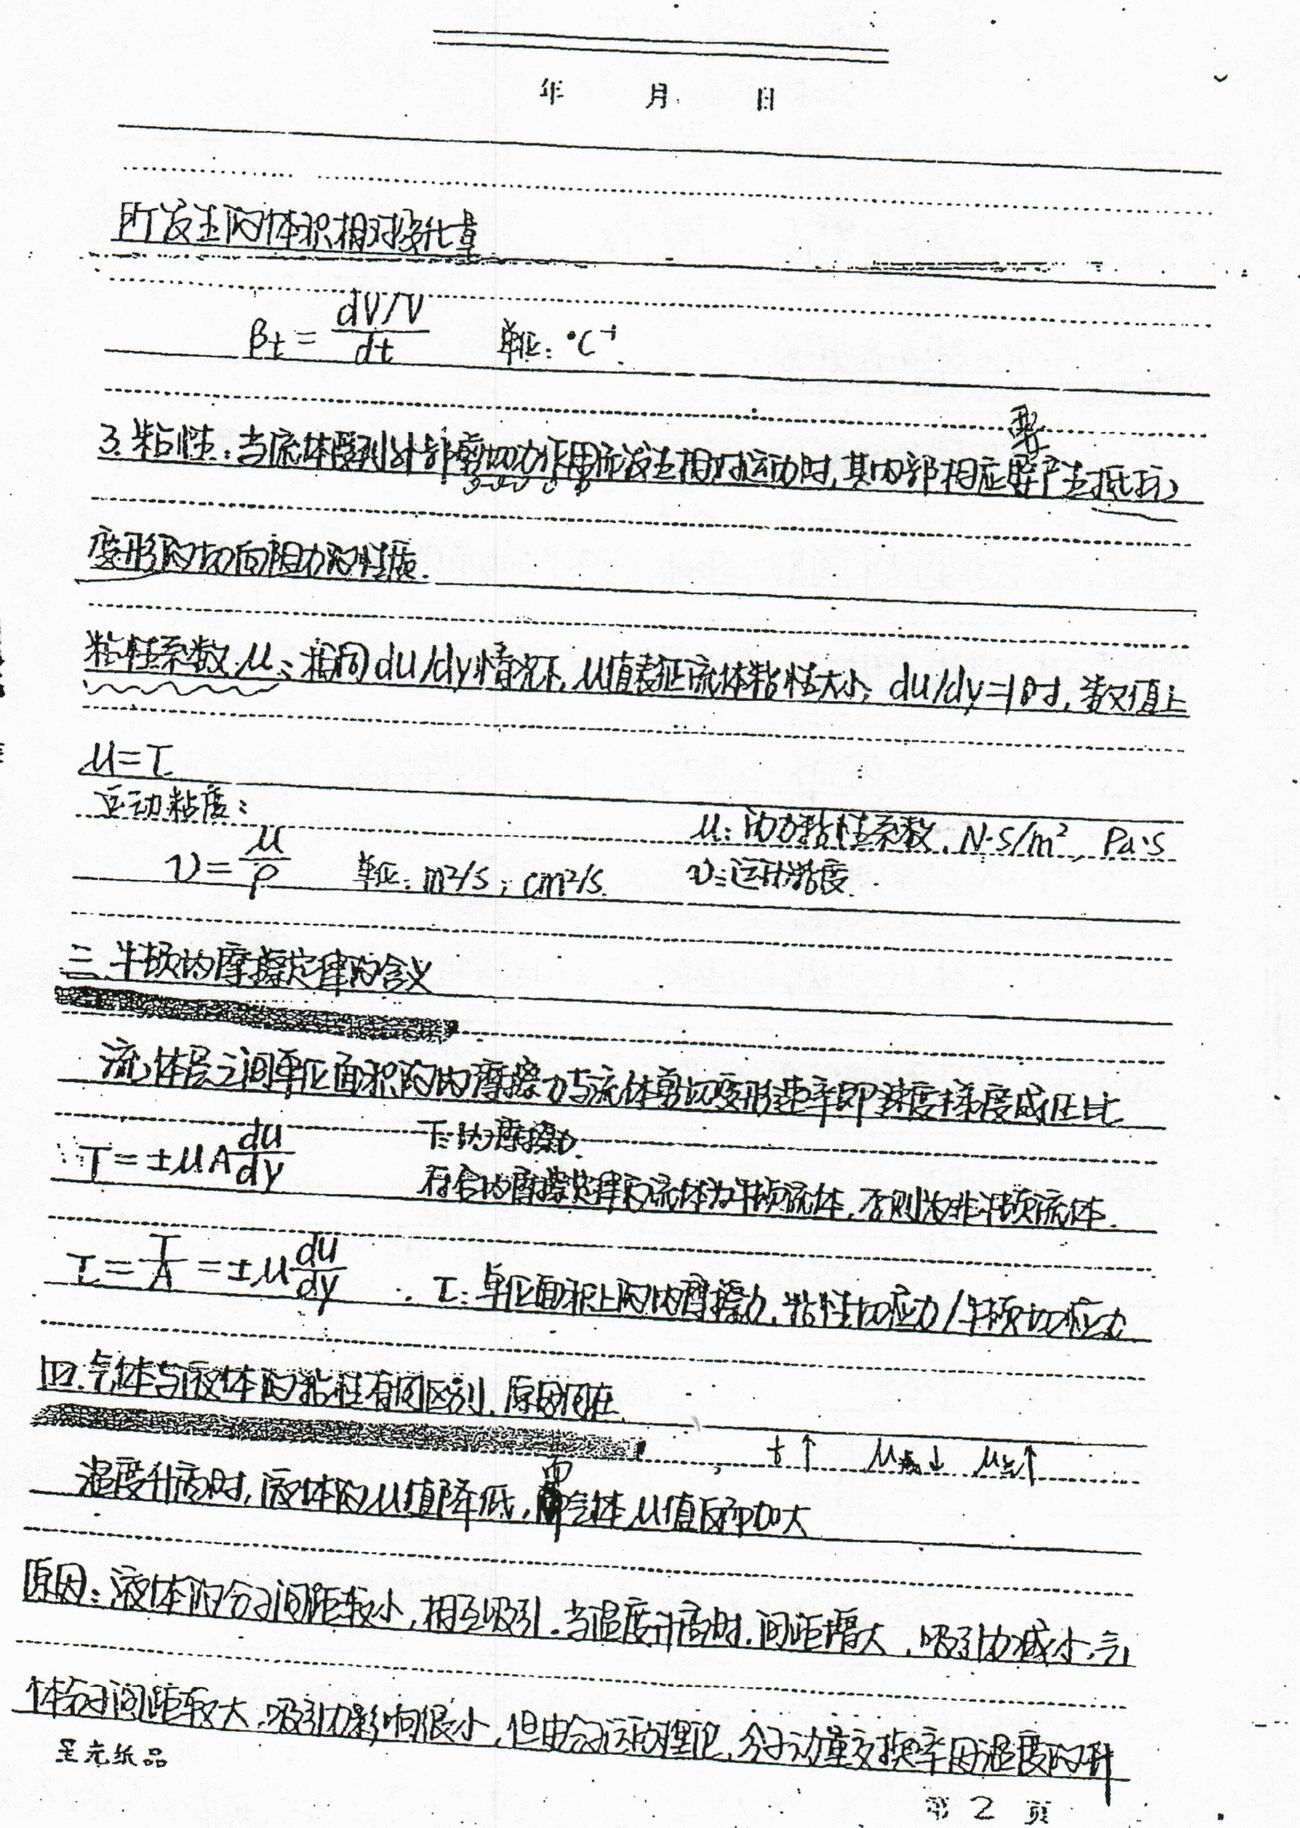 年 月 日
所发生的体积相对变化量
βt = dV/V / dt 单位：℃⁻¹
要
3. 粘性：当流体受到外部剪切力作用而发生相对运动时，其内部相应要产生抵抗
变形的切向阻力的性质.
粘性系数 μ：相同du/dy情况下，μ值表征流体粘性大小；du/dy=1时，数值上
μ=τ
运动粘度：
μ：动力粘性系数. N·S/m², Pa·S
ν = μ/ρ 单位：m²/s；cm²/s. ν：运动粘度.
三.牛顿内摩擦定律的含义
流体层之间单位面积的内摩擦力与流体剪切变形速率即速度梯度成正比
T = ±μA du/dy T：内摩擦力.
符合内摩擦定律的流体为牛顿流体，否则为非牛顿流体.
τ = T/A = ±μ du/dy . τ：单位面积上的内摩擦力，粘性切应力/牛顿切应力
四.气体与液体的粘性有何区别，原因何在.
t↑ μ液↓ μ气↑
温度升高时，液体的μ值降低，而气体μ值反而加大
原因：液体的分子间距较小，相互吸引.当温度升高时.间距增大，吸引力减小.气
体分子间距较大，吸引力影响很小，但由分子运动理论，分子动量交换率因温度的升
呈亮纸品
第 2 页